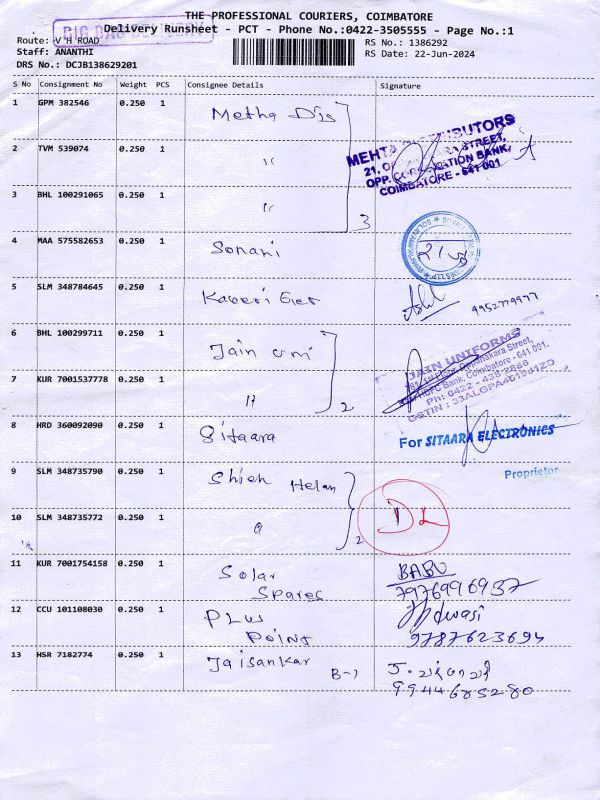 THE PROFESSIONAL COURIERS, COIMBATORE
Delivery Runsheet - PCT - Phone No.:0422-3505555 - Page No.:1
Route: V H ROAD
RS No.: 1386292
Staff: ANANTHI
RS Date: 22-Jun-2024
DRS No.: DCJB138629201
S No Consignment No Weight PCS Consignee Details Signature
1 GPM 382546 0.250 1 Metha Dis
2 TVM 539074 0.250 1 "
MEHTA DISTRIBUTORS
STREET,
OPP. CORPORATION BANK,
COIMBATORE - 641 001
3 BHL 100291065 0.250 1 "
3
4 MAA 575582653 0.250 1 Sonani
5 SLM 348784645 0.250 1 Kaveri Eler
9952779977
6 BHL 100299711 0.250 1 Jain uni
JAIN UNIFORMS
Oppanakara Street,
HDFC Bank, Coimbatore - 641 001.
Ph: 0422 - 438 2866
GSTIN : 33ALGPA4619J1ZD
7 KUR 7001537778 0.250 1 "
2
8 HRD 360092090 0.250 1 Sitaara
For SITAARA ELECTRONICS
Proprietor
9 SLM 348735790 0.250 1 Shieh Helan
10 SLM 348735772 0.250 1 "
2
DL
11 KUR 7001754158 0.250 1 Solar Spares
BABU
7976996937
12 CCU 101108030 0.250 1 PLUS POINT
9787623694
13 HSR 7182774 0.250 1 Jaisankar B-1
9944685280